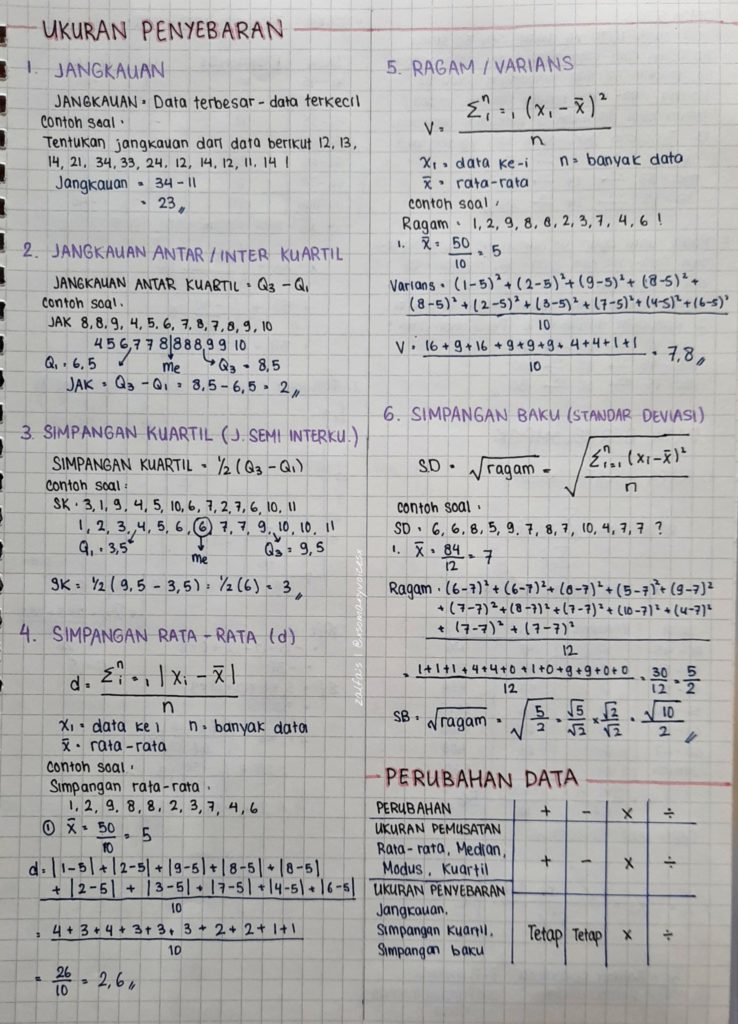 UKURAN PENYEBARAN
1. JANGKAUAN
JANGKAUAN = Data terbesar - data terkecil
contoh soal :
Tentukan jangkauan dari data berikut 12, 13,
14, 21, 34, 33, 24, 12, 14, 12, 11, 14 !
Jangkauan = 34 - 11
= 23 //
2. JANGKAUAN ANTAR / INTER KUARTIL
JANGKAUAN ANTAR KUARTIL = Q3 - Q1
contoh soal :
JAK 8, 8, 9, 4, 5, 6, 7, 8, 7, 8, 9, 10
4 5 6, 7 7 8 | 8 8 8, 9 9 10
Q1 = 6,5 me Q3 = 8,5
JAK = Q3 - Q1 = 8,5 - 6,5 = 2 //
3. SIMPANGAN KUARTIL (J. SEMI INTERKU.)
SIMPANGAN KUARTIL = ½ (Q3 - Q1)
contoh soal :
SK = 3, 1, 9, 4, 5, 10, 6, 7, 2, 7, 6, 10, 11
1, 2, 3, 4, 5, 6, 6, 7, 7, 9, 10, 10, 11
Q1 = 3,5 me Q3 = 9,5
SK = ½ (9,5 - 3,5) = ½ (6) = 3 //
4. SIMPANGAN RATA - RATA (d)
d = Σⁿi=1 | xi - x̄ |
n
xi = data ke i n = banyak data
x̄ = rata-rata
contoh soal :
Simpangan rata-rata :
1, 2, 9, 8, 8, 2, 3, 7, 4, 6
① x̄ = 50/10 = 5
d = |1-5| + |2-5| + |9-5| + |8-5| + |8-5|
+ |2-5| + |3-5| + |7-5| + |4-5| + |6-5|
10
= 4 + 3 + 4 + 3 + 3 + 3 + 2 + 2 + 1 + 1
10
= 26/10 = 2,6 //
5. RAGAM / VARIANS
V = Σⁿi=1 (xi - x̄)²
n
xi = data ke-i n = banyak data
x̄ = rata-rata
contoh soal :
Ragam = 1, 2, 9, 8, 8, 2, 3, 7, 4, 6 !
1. x̄ = 50/10 = 5
Varians = (1-5)² + (2-5)² + (9-5)² + (8-5)² +
(8-5)² + (2-5)² + (3-5)² + (7-5)² + (4-5)² + (6-5)²
10
V = 16 + 9 + 16 + 9 + 9 + 9 + 4 + 4 + 1 + 1
10
= 7,8 //
6. SIMPANGAN BAKU (STANDAR DEVIASI)
SD = √ragam = √Σⁿi=1 (xi - x̄)²
n
contoh soal :
SD = 6, 6, 8, 5, 9, 7, 8, 7, 10, 4, 7, 7 ?
1. x̄ = 84/12 = 7
Ragam = (6-7)² + (6-7)² + (8-7)² + (5-7)² + (9-7)²
+ (7-7)² + (8-7)² + (7-7)² + (10-7)² + (4-7)²
+ (7-7)² + (7-7)²
12
= 1+1+1+4+4+0+1+0+9+9+0+0
12
= 30/12 = 5/2
SB = √ragam = √5/2 = √5/√2 × √2/√2 = √10/2 //
PERUBAHAN DATA
PERUBAHAN + - × ÷
UKURAN PEMUSATAN
Rata-rata, Median,
Modus, Kuartil + - × ÷
UKURAN PENYEBARAN
Jangkauan,
Simpangan Kuartil, Tetap Tetap × ÷
Simpangan baku